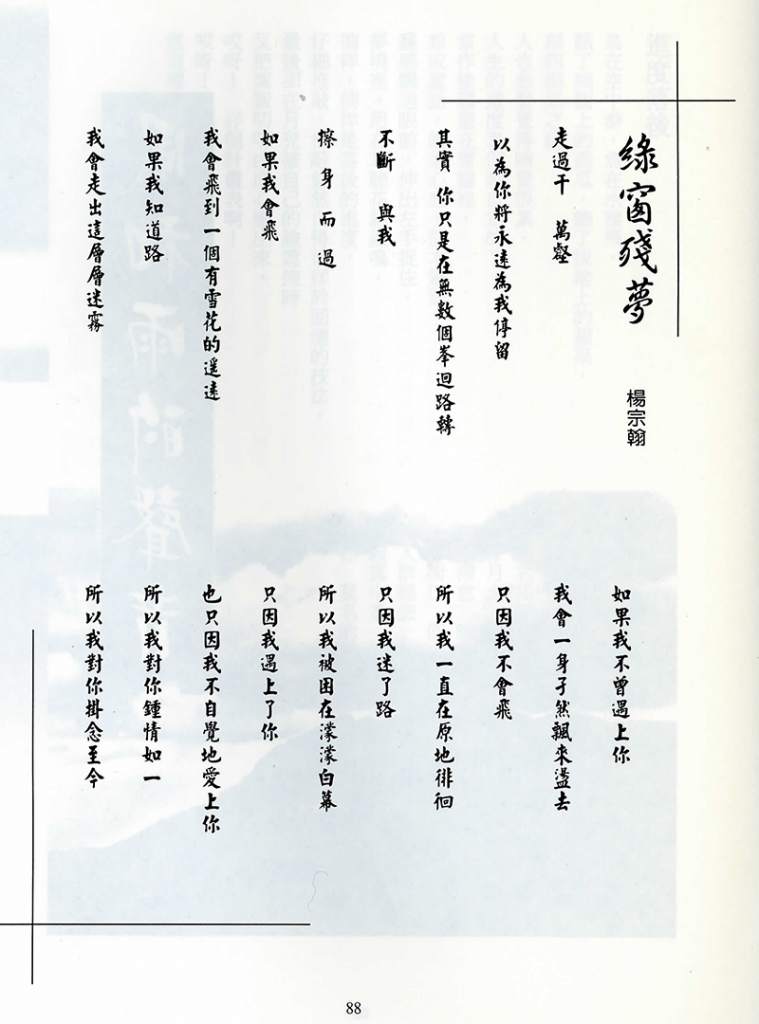 綠窗殘夢
楊宗翰
走過千　萬壑
以為你將永遠為我停留
其實　你只是在無數個峯迴路轉
不斷　與我
擦　身　而　過
如果我會飛
我會飛到一個有雪花的遙遠
如果我知道路
我會走出這層層迷霧
如果我不曾遇上你
我會一身孑然飄來盪去
只因我不會飛
所以我一直在原地徘徊
只因我迷了路
所以我被困在濛濛白幕
只因我遇上了你
也只因我不自覺地愛上你
所以我對你鍾情如一
所以我對你掛念至今
88